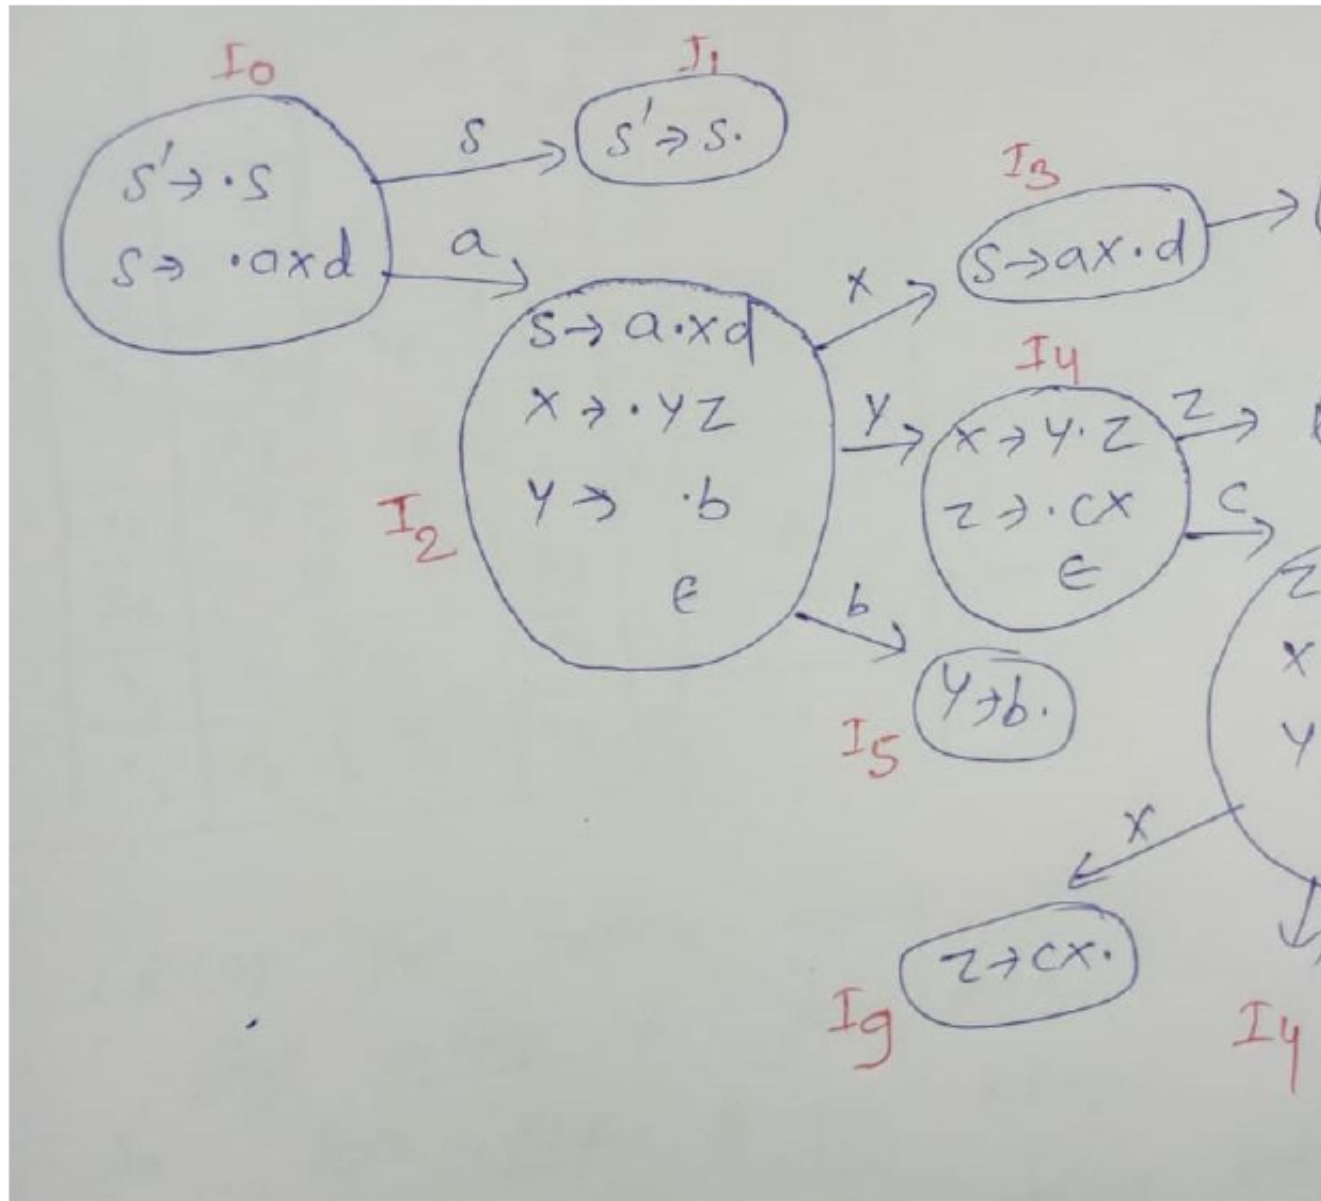 I0
S' → ·S
S → ·aXd
S
a
I1
S' → S·
I2
S → a·Xd
X → ·YZ
Y → ·b
ϵ
X
Y
b
I3
S → aX·d
I4
X → Y·Z
Z → ·cX
ϵ
Z
c
I5
Y → b·
Z
X
Y
X
I9
Z → cX·
I4